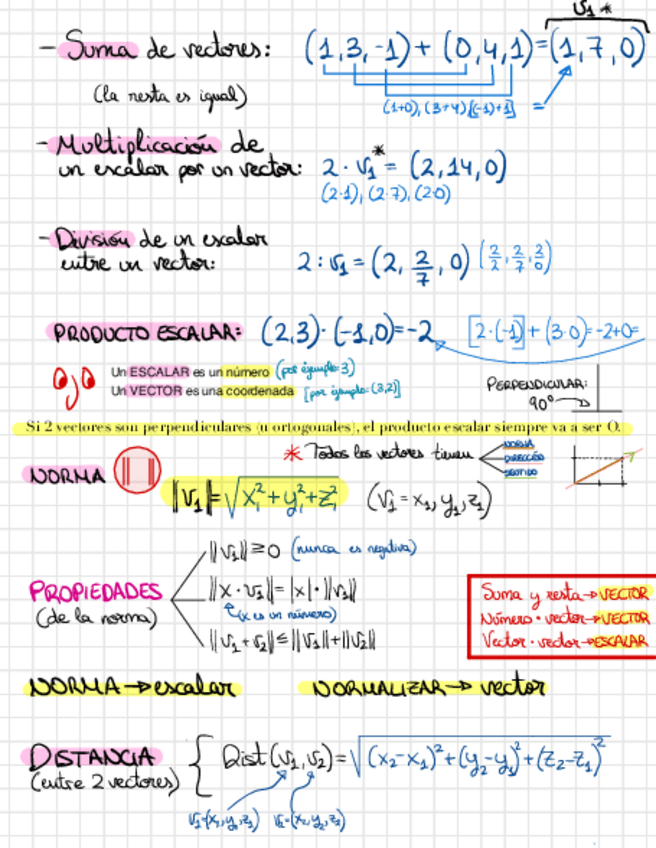 V₁ *
- Suma de vectores: (1,3,-1) + (0,4,1) = (1,7,0)
(la resta es igual)
(1+0), (3+4) [(-1)+1] =
- Multiplicación de
un escalar por un vector: 2 · V₁* = (2,14,0)
(2·1), (2·7), (2·0)
- División de un escalar
entre un vector: 2 : V₁ = (2, 2/7, 0) (2/2, 2/7, 2/0)
PRODUCTO ESCALAR: (2,3)·(-1,0)=-2 [2·(-1)]+(3·0)=-2+0=
Un ESCALAR es un número (por ejemplo: 3)
Un VECTOR es una coordenada [por ejemplo: (3,2)]
PERPENDICULAR:
90º
Si 2 vectores son perpendiculares (u ortogonales), el producto escalar siempre va a ser 0.
* Todos los vectores tienen
NORMA
DIRECCIÓN
SENTIDO
NORMA
||V₁|| = √x₁²+y₁²+z₁² (V₁ = x₁, y₁, z₁)
PROPIEDADES
(de la norma)
||V₁|| ≥ 0 (nunca es negativa)
||x · V₁|| = |x| · ||V₁||
(x es un número)
||V₁ + V₂|| ≤ ||V₁|| + ||V₂||
Suma y resta → VECTOR
Número · vector → VECTOR
Vector · vector → ESCALAR
NORMA → escalar NORMALIZAR → vector
DISTANCIA
(entre 2 vectores)
Dist (V₁, V₂) = √(x₂-x₁)²+(y₂-y₁)²+(z₂-z₁)²
V₁=(x₁,y₁,z₁) V₂=(x₂,y₂,z₂)